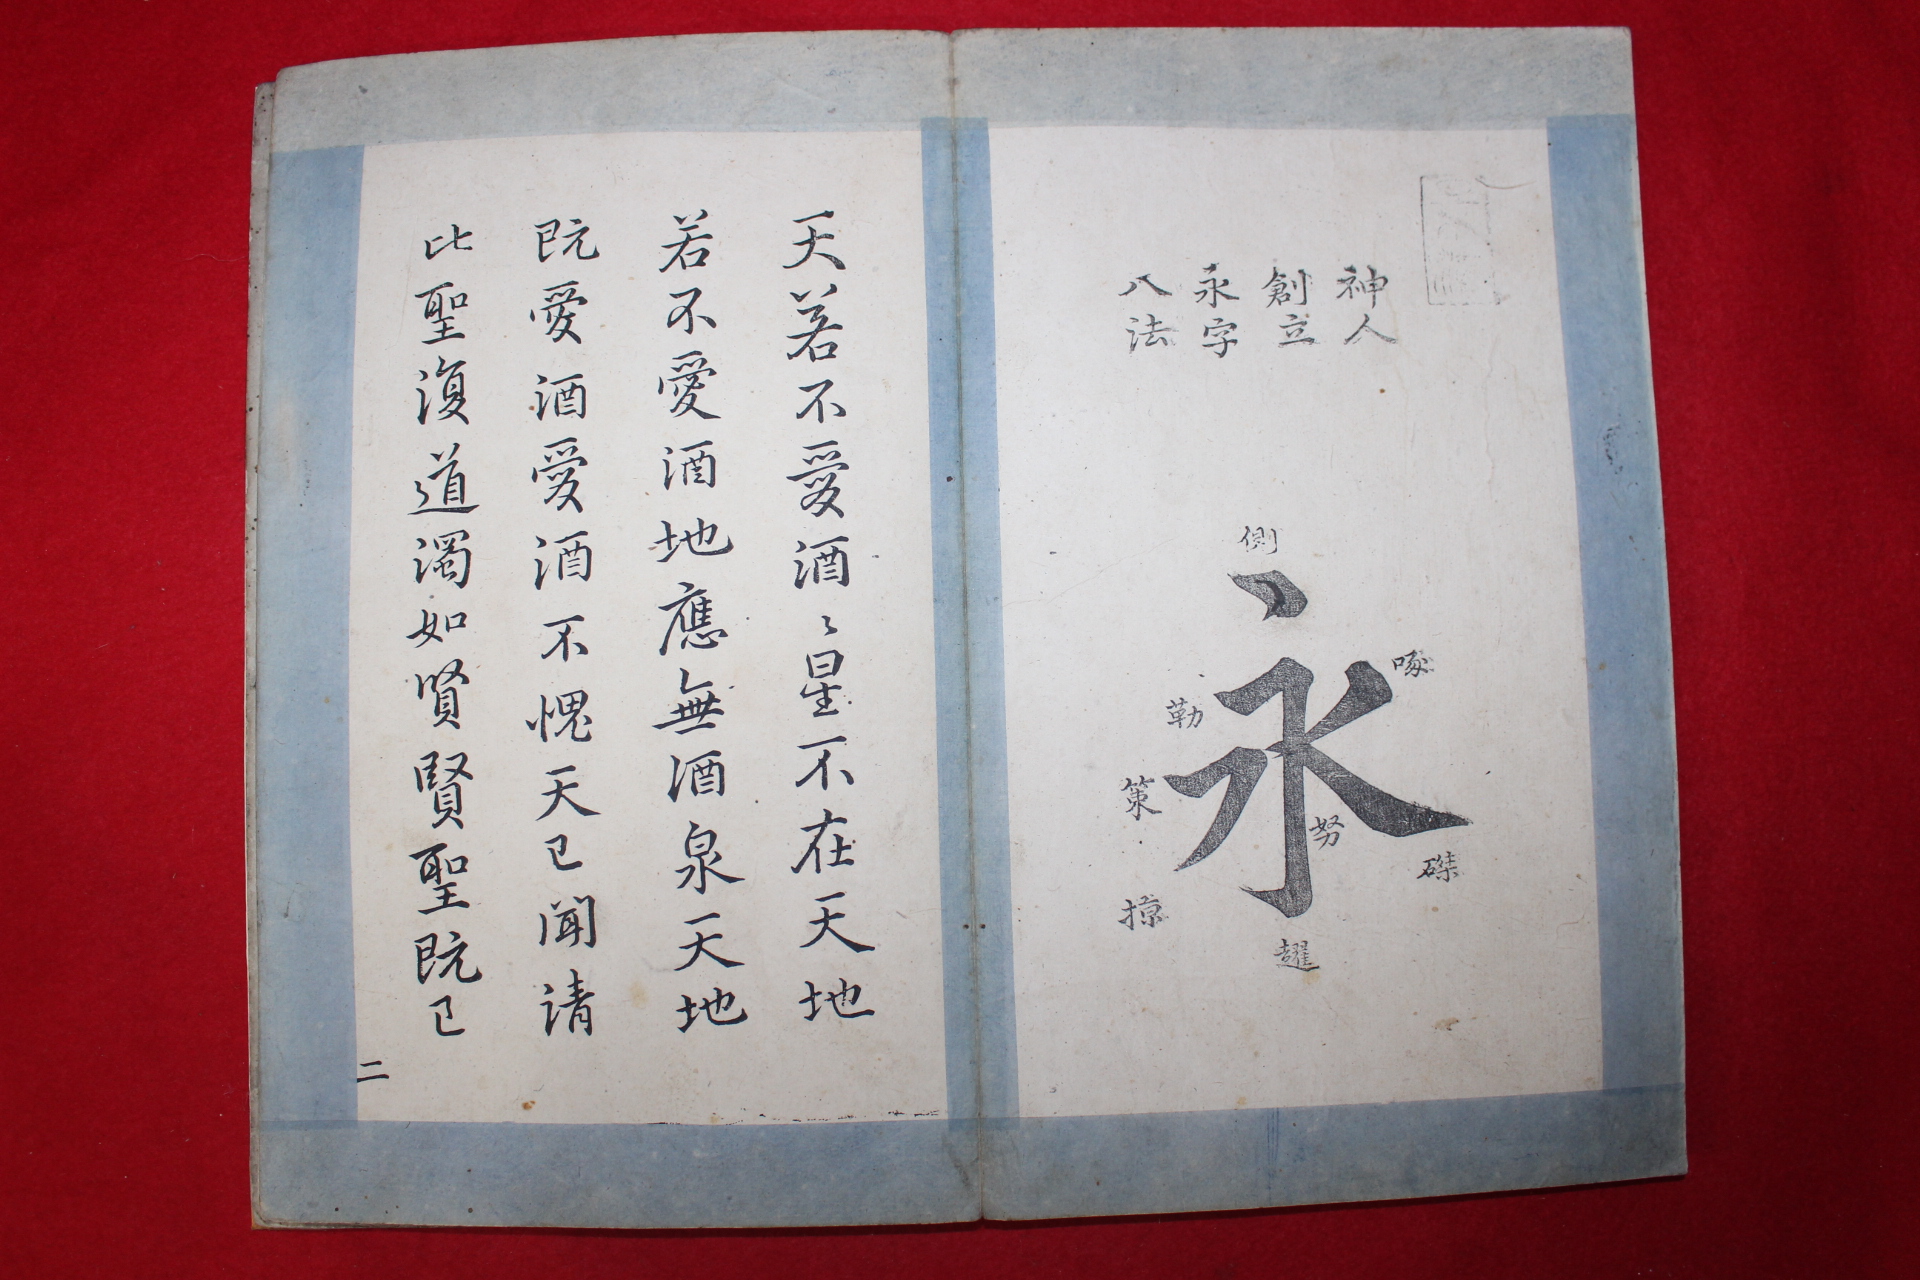 神人
創立
永字
八法
側
啄
勒
策
努
磔
掠
趯
天若不愛酒〻星不在天地
若不愛酒地應無酒泉天地
既愛酒愛酒不愧天已聞請
比聖復道濁如賢賢聖既已
二